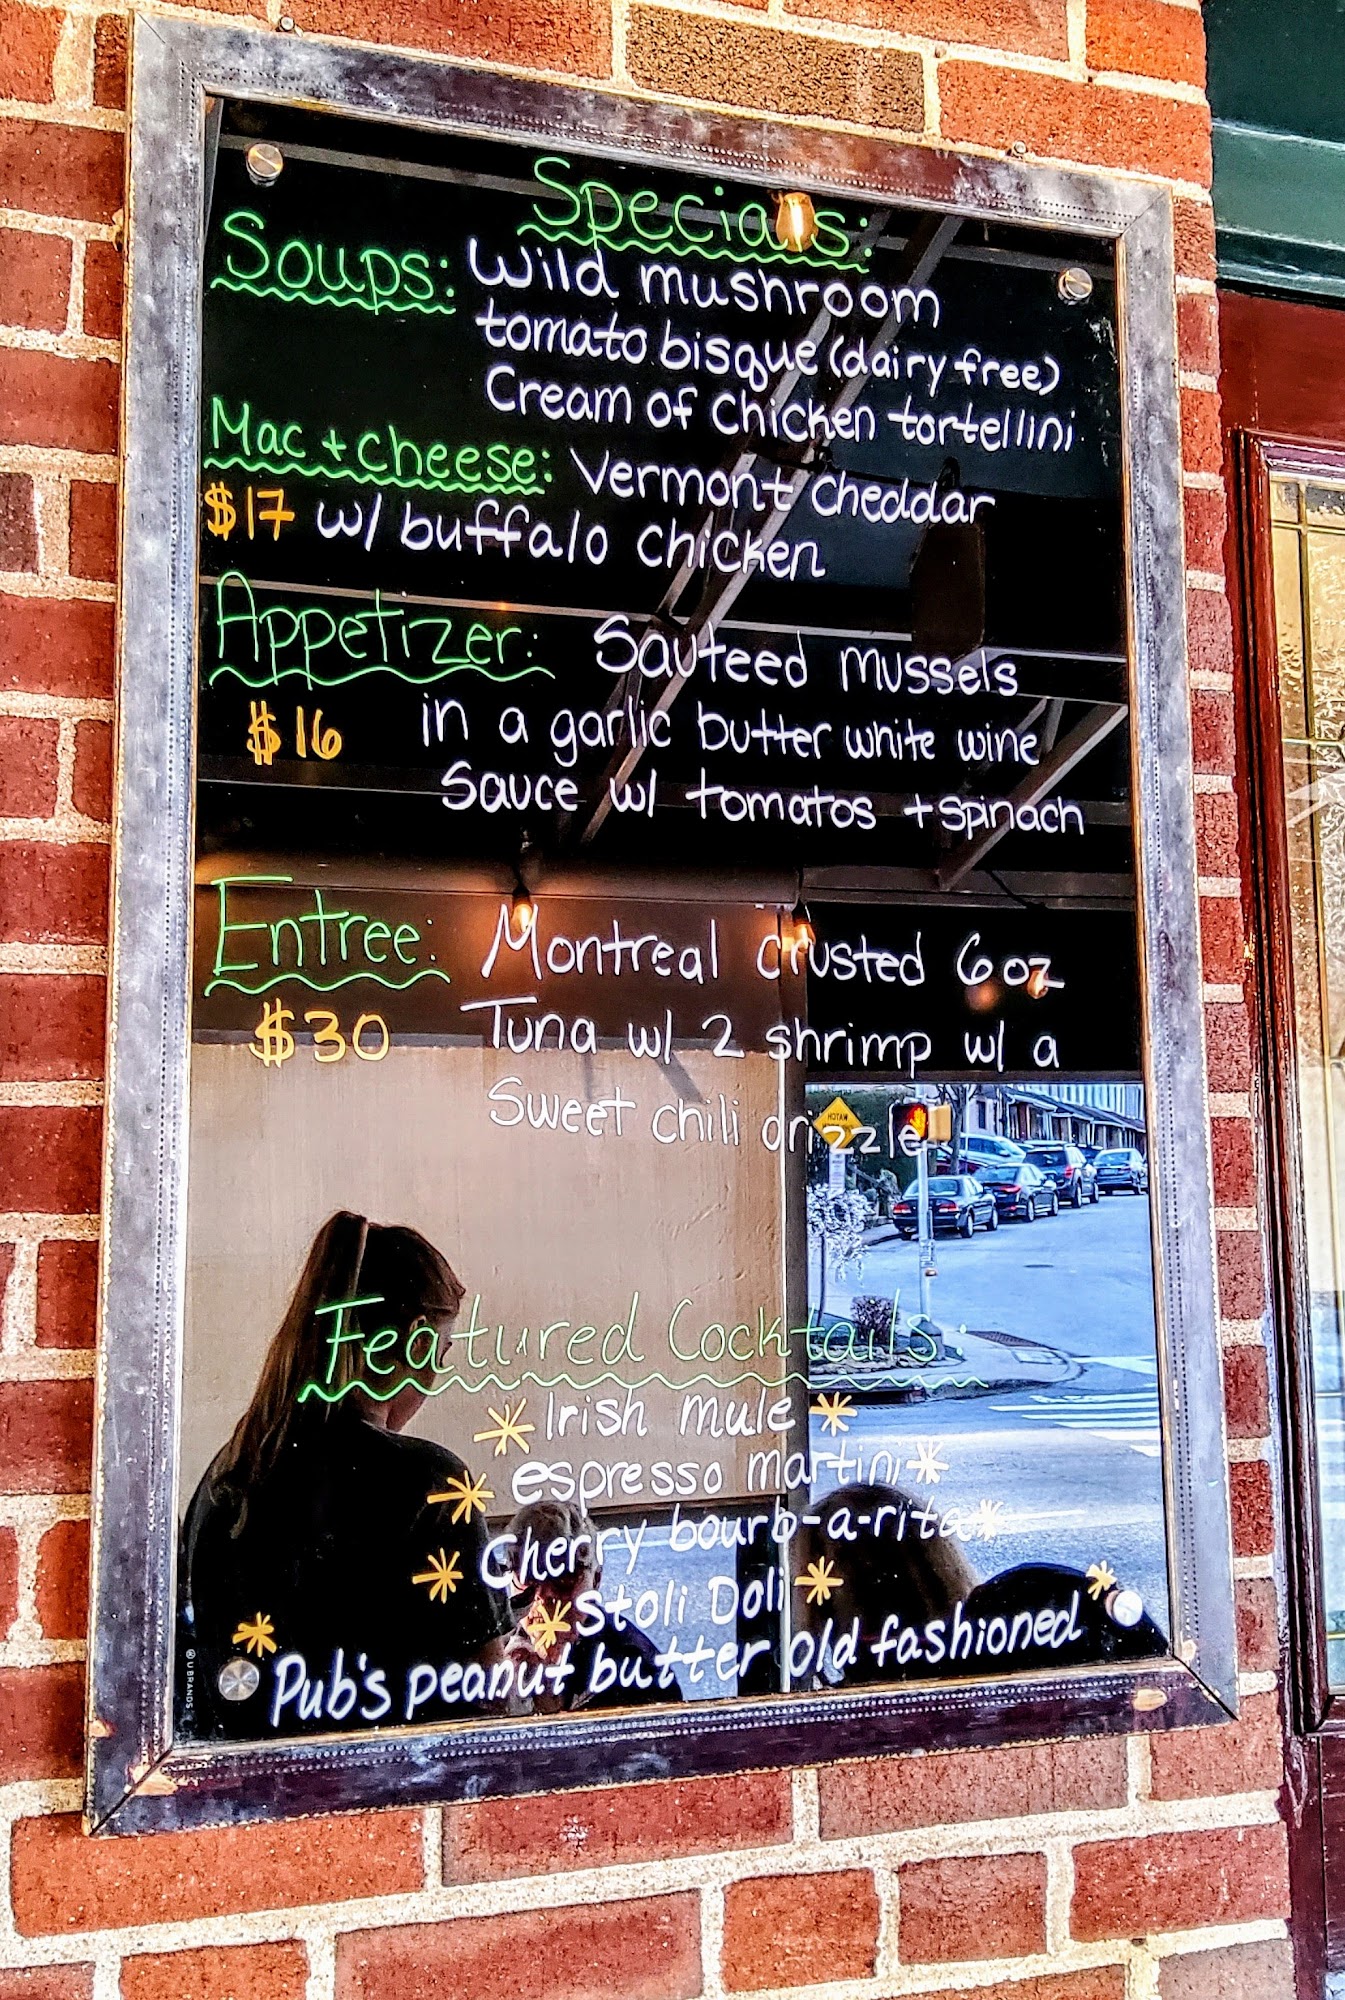 Specials:
Soups: Wild mushroom
tomato bisque (dairy free)
Cream of Chicken tortellini
Mac + cheese: Vermont Cheddar
$17 w/ buffalo chicken
Appetizer: Sauteed mussels
$16 in a garlic butter white wine
Sauce w/ tomatos + spinach
Entree: Montreal crusted 6oz
$30 Tuna w/ 2 shrimp w/ a
Sweet chili drizzle
Featured Cocktails:
Irish mule
espresso martini
Cherry bourb-a-rita
Stoli Doli
Pub's peanut butter old fashioned
U BRANDS
WATCH